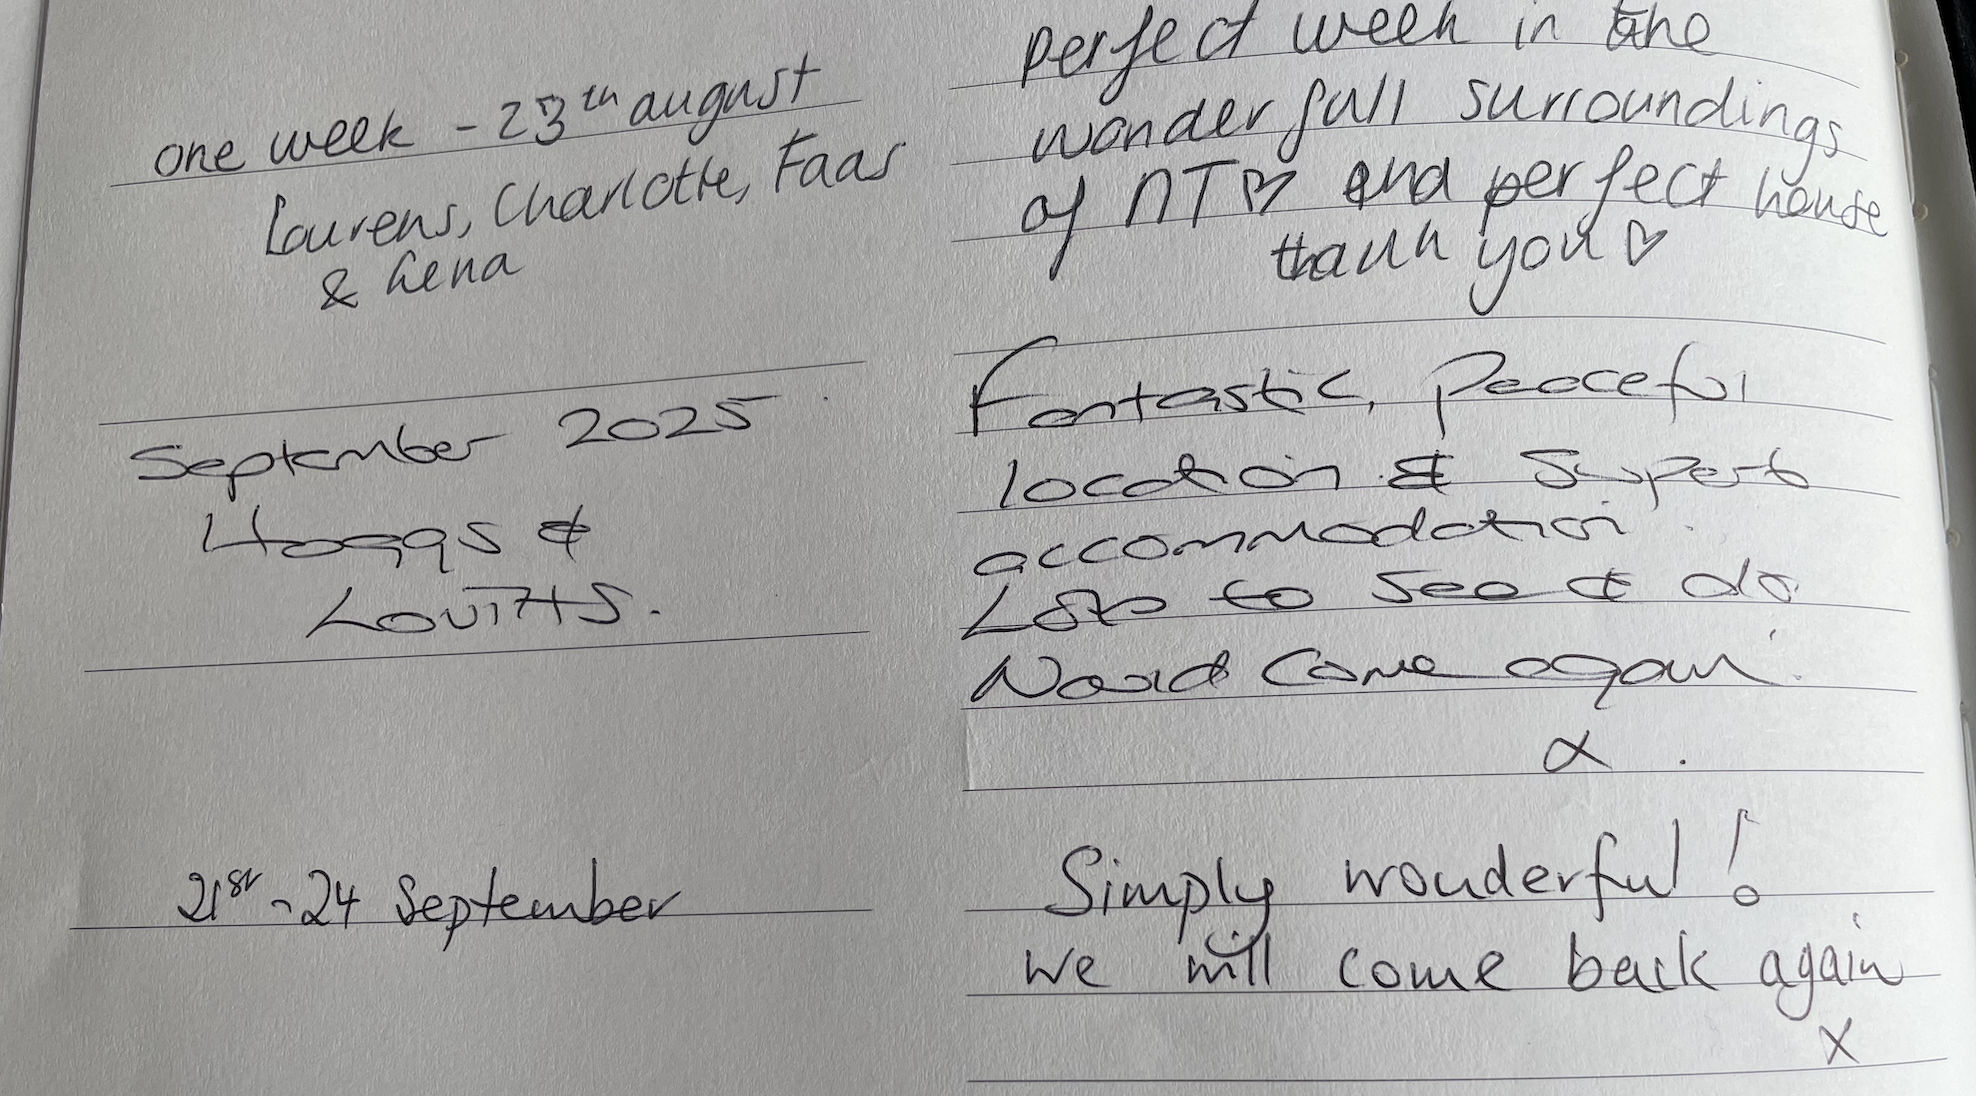 one week - 23th august
Laurens, Charlotte, Faas
& Lena
perfect week in the
wonderfull surroundings
of NT♡ and perfect house
thank you ♡
September 2025
Hoggs &
Lovitts.
Fantastic, Peaceful
location & Superb
accommodation.
Lots to see & do.
Would come again.
x.
21st - 24 September
Simply wonderful!
we will come back again
x